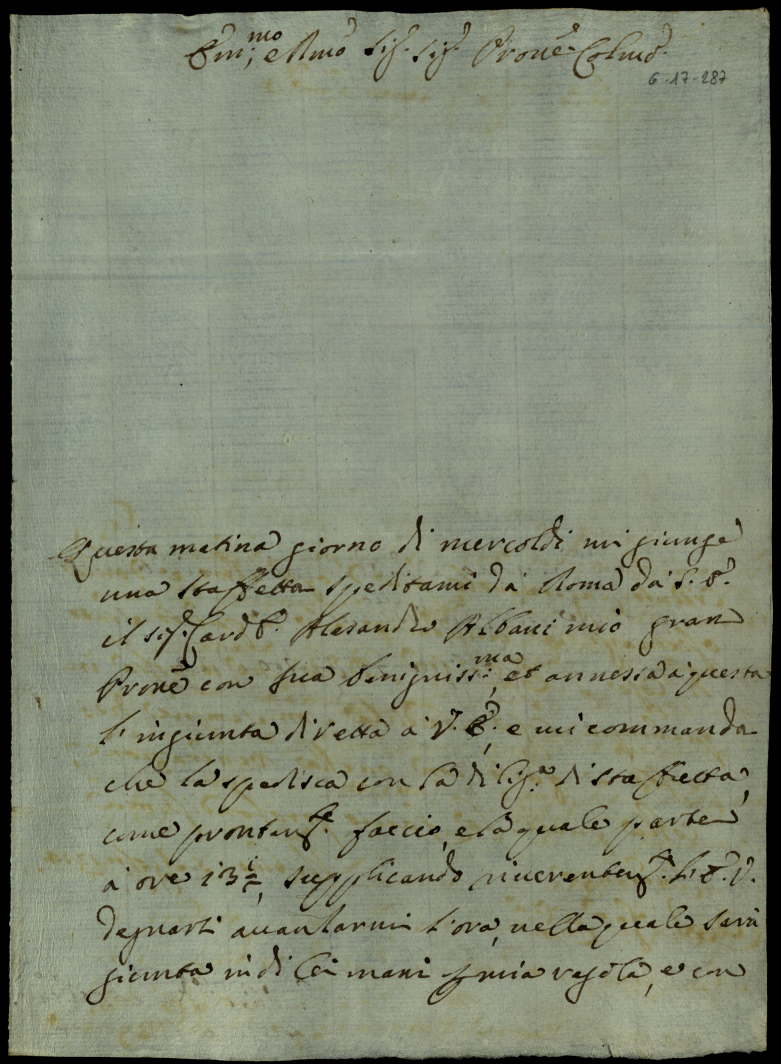 Em:mo e Rmo Sig.r Sig.r Prone Colmo
6-17-287
Questa matina giorno di mercoldi mi giunge
una staffetta speditami da Roma da S. E.
il Sig.r Card.e Alesandro Albani mio gran
Prone con sua benigniss:ma, et annessa a questa
l'ingiunta diretta a V. E., e mi commanda
che la spedisca con la dilig.a di staffetta,
come prontam.te faccio, e la quale parte
a ore 13 1/2, supplicando riverentem.te l'E. V.
degnarsi avantarmi l'ora, nella quale sarà
giunta in di lei mani p mia regola, e con